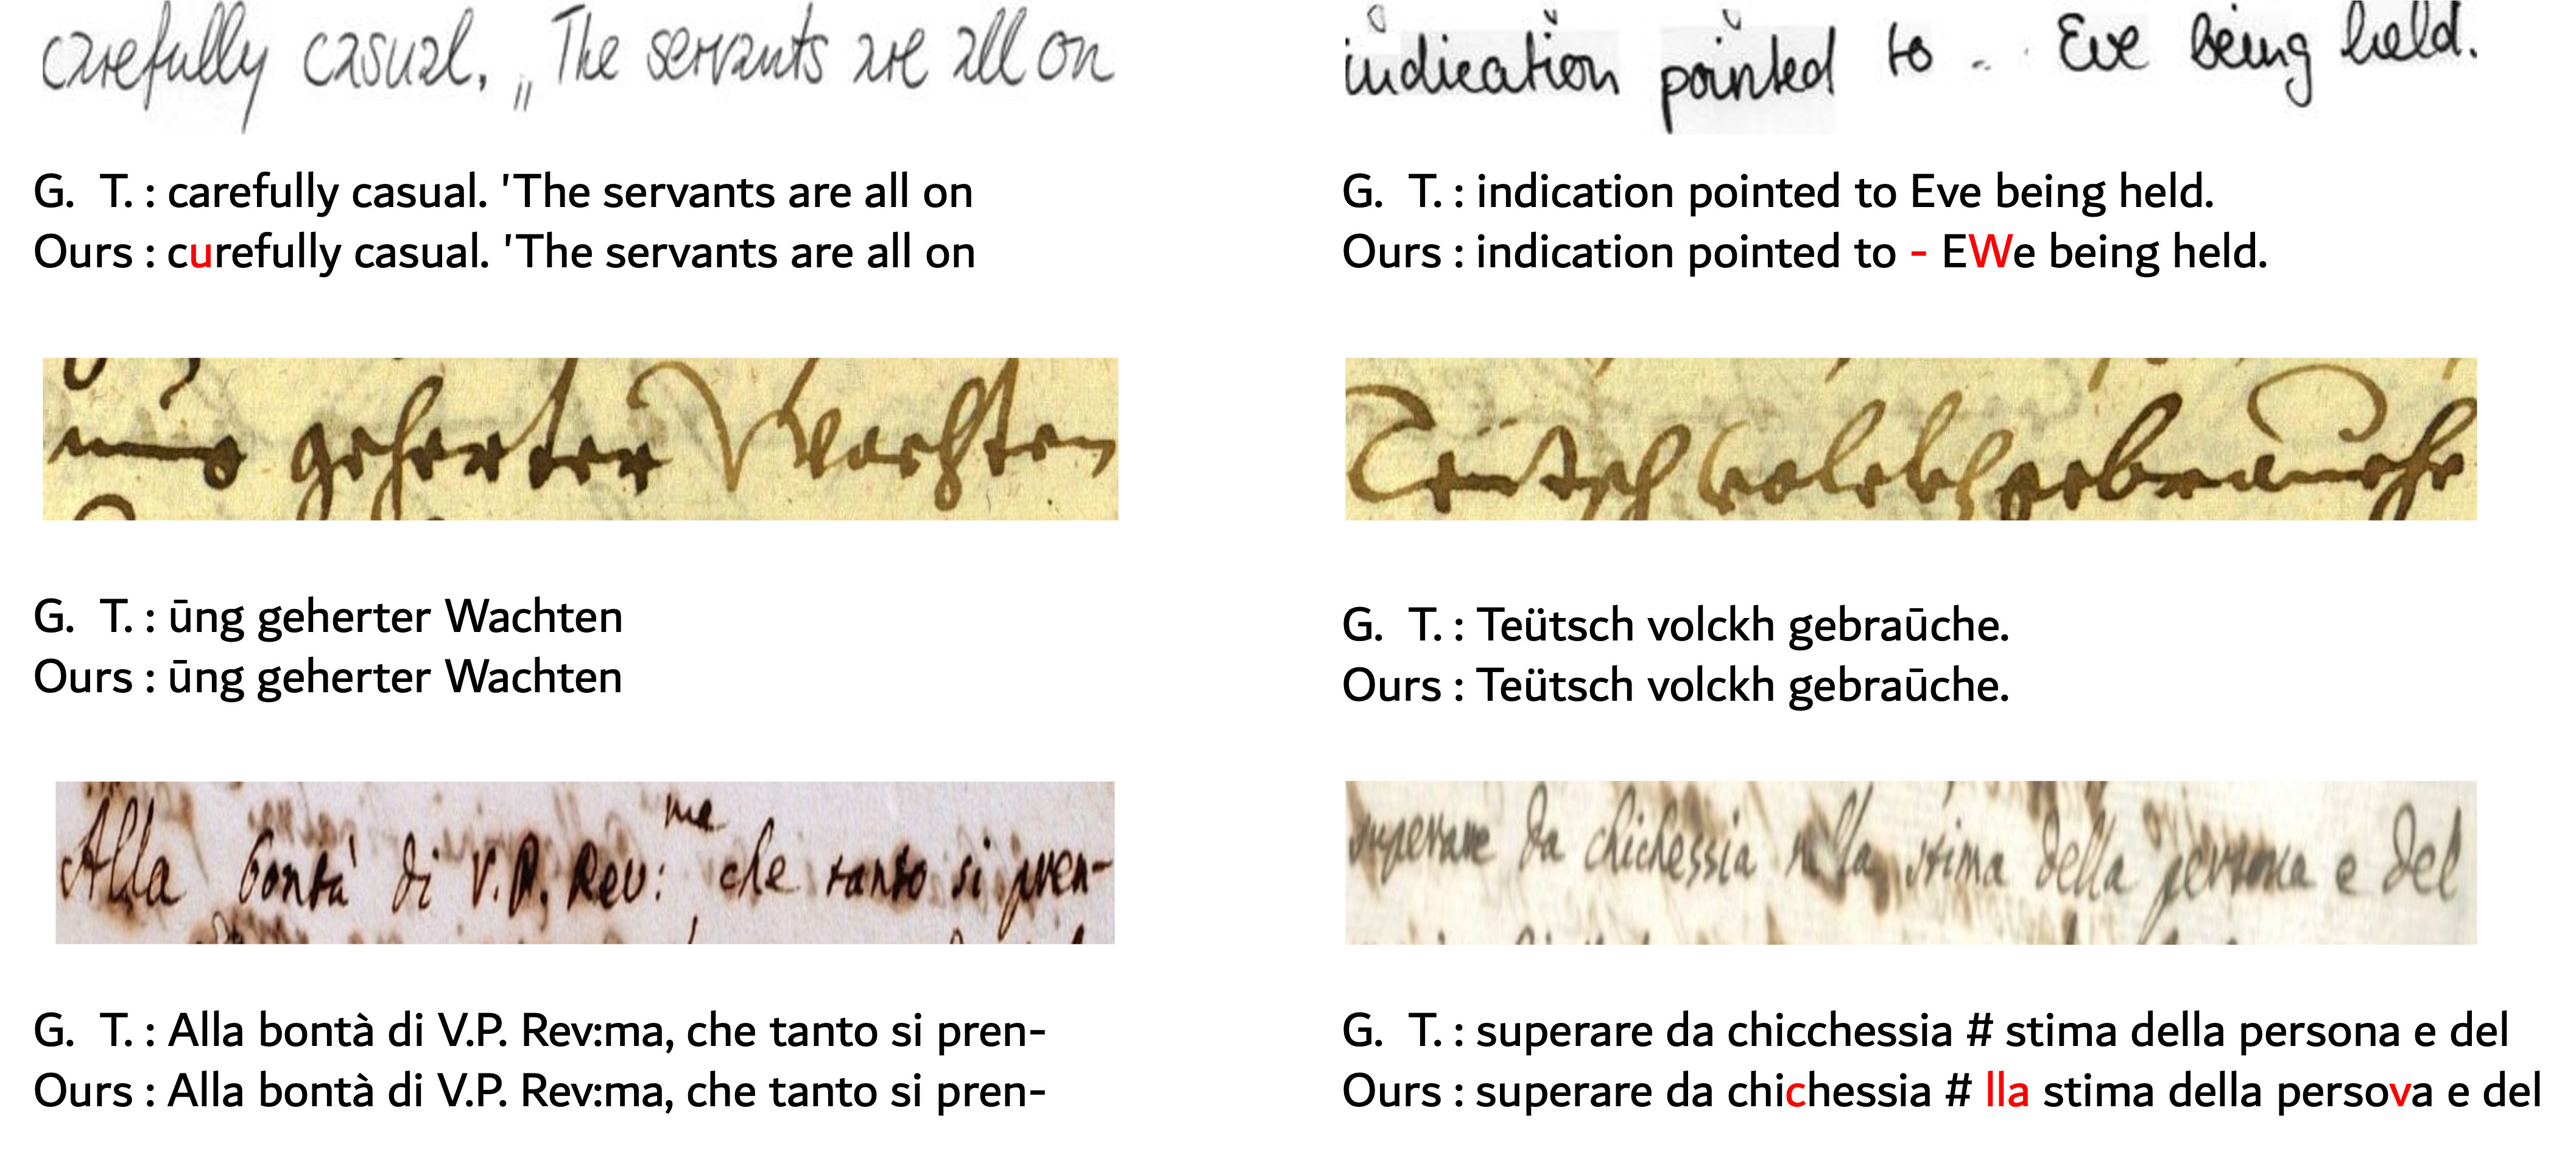 carefully casual. „The servants are all on
indication pointed to - Eve being held.
G. T. : carefully casual. 'The servants are all on
Ours : curefully casual. 'The servants are all on
G. T. : indication pointed to Eve being held.
Ours : indication pointed to - EWe being held.
ūng geherter Wachten
Teütsch volckh gebrauche
G. T. : ūng geherter Wachten
Ours : ūng geherter Wachten
G. T. : Teütsch volckh gebraūche.
Ours : Teütsch volckh gebraūche.
Alla bontà di V.P. Rev:me che tanto si pren-
superare da chichessia lla stima della persona e del
G. T. : Alla bontà di V.P. Rev:ma, che tanto si pren-
Ours : Alla bontà di V.P. Rev:ma, che tanto si pren-
G. T. : superare da chicchessia # stima della persona e del
Ours : superare da chichessia # lla stima della persova e del